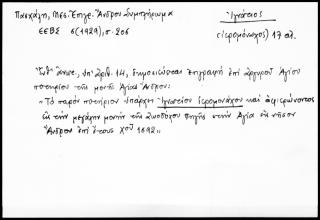 Πασχάλη, Μεσ. Επιγρ. Άνδρου Συμπλήρωμα
Ἰγνάτιος
ΕΕΒΣ 6(1929), σ. 206
(ἱερομόναχος) 17 αἰ.
Ἔνθ' ἄνωτ., ὑπ' ἀριθ. 14, δημοσιεύεται ἐπιγραφή ἐπί ἀργυροῦ Ἁγίου
ποτηρίου τῆς μονῆς Ἁγίας Ἄνδρου:
"Τό παρόν ποτήριον ὑπάρχει Ἰγνατίου Ἱερομονάχου καί ἀφιερώνοντας
εἰς τήν μεγάλην μονήν τῆς Ζωοδόχου Πηγῆς στήν Ἁγία εἰς νῆσον
Ἄνδρου ἐπί ἔτους Χοῦ 1692"